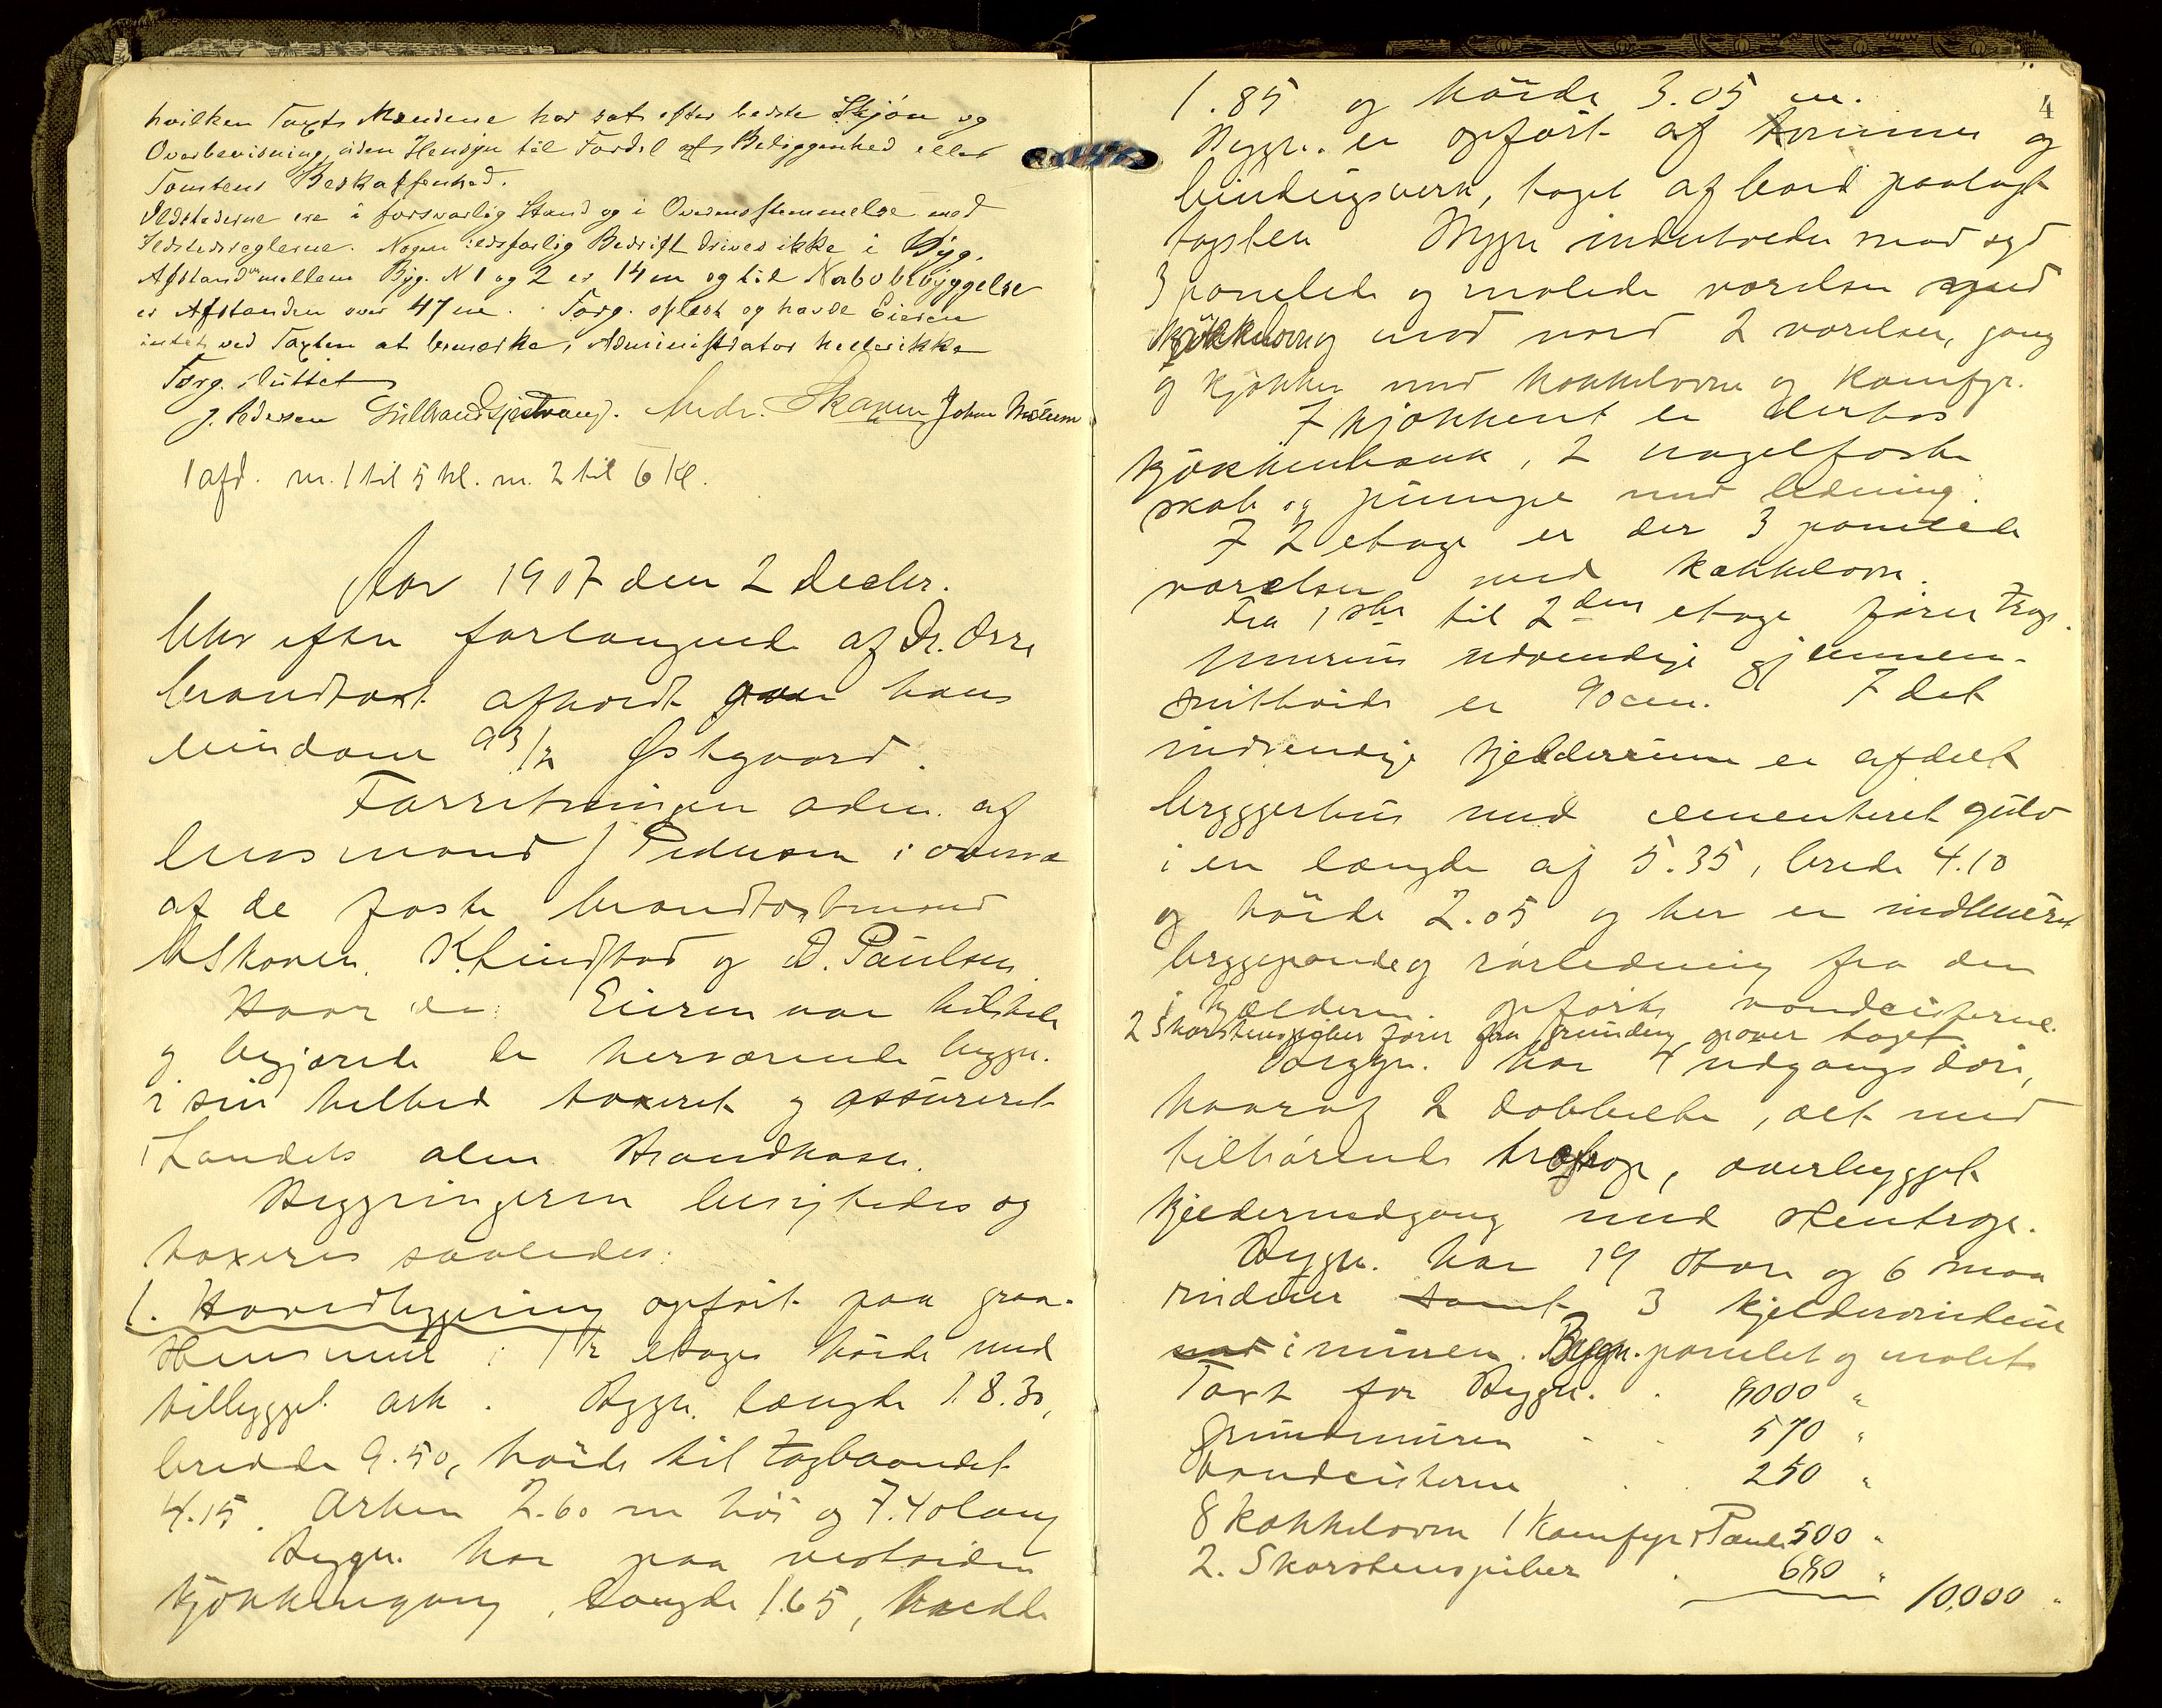 hvilken Taxt Mændene har sat efter bedste Skjön og
Overbevisning uden Hensyn til Fordel af Beliggenhed eller
Tomtens Beskaffenhed.
Ildstederne ere i forsvarlig Stand og i Overensstemmelse med
Ildstedsreglerne. Nogen ildsfarlig Bedrift drives ikke i Byg.
Afstanden mellem Byg. N 1 og 2 er 14 m og til Nabobebyggelse
er Afstanden over 47 m. Forg. oplæst og havde Eieren
intet ved Taxten at bemærke, Administrator heller ikke
Forg. sluttet
J. Pedersen Gulbrand Andr. Skaven Johan
1 afd. nr. 1 til 5 kl. nr. 2 til 6 Kl.
Aar 1907 den 2 Decbr.
blev efter forlangende af Dr. Orre
brandtaxt afholdt over hans
eiendom 93/2 Østgaard.
Forretningen adm. af
lensmand J Pedersen i overvær
af de faste brandtaxtmænd
A Skaven. K. Lindstad og D. Paulsen.
Hvor da: Eieren var tilstede
og begjærede de herværende byggn.
i sin helhed taxeret og assureret
i Landets alm Brandkasse.
Byggningerne besigtedes og
taxeres saaledes:
1. Hovedbyggning opført paa graa-
stensmur i 1 1/2 etages høide med
tilbygget ark. Byggn. længde 18.30,
bredde 9.50, høide til tagbaandet
4.15. Arken 2.60 m høi og 7.40 lang
Byggn. har paa vestsiden
kjøkkengang, længde 1.65, bredde
4
1.85 og høide 3.05 m.
Byggn. er opført af tømmer og
bindingsverk, taget af bord paalagt
tagsten Byggn indeholder mod syd
3 panelede og malede værelser med
kakkelovn og mod nord 2 værelser, gang
og kjøkken med kakkelovn og Komfyr.
I kjøkkenet er derhos
kjøkkenbænk, 2 nagelfaste
skabe og pumpe med ledning.
I 2 etage er der 3 panelede
værelser med kakkelovn.
Fra 1ste til 2den etage fører Trap.
Murens udvendige gjennem-
snitshøide er 90 cm. I det
indvendige kjelderrum er afdelt
bryggerhus med cementeret gulv
i en længde af 5.35, brede 4.10
og høide 2.05 og her er indmuret
bryggepande og rørledning fra den
i kjælderen opførte vandcisterne.
2 Skorstenspiber fører fra grunden over taget.
Byggn. har 4 udgangsdøre,
hvoraf 2 dobbelte, alt med
tilhørende trætrap, overbygget
kjelderindgang med stentrap.
Byggn. har 19 store og 6 smaa
vinduer samt 3 kjeldervinduer
i muren. Byggn. panelet og malet
Taxt for Byggn. . 8000 "
Grundmuren . . 570 "
Vandcisterne . . 250 "
8 kakkelovne 1 Komfyr 1 Pande 500 "
2. Skorstenspiber . 680 "
10,000 "